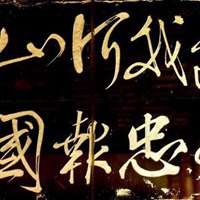 我河山
忠報國